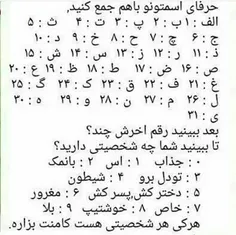 حرفای اسمتونو باهم جمع کنید,
الف : ۱ ب : ۲ پ : ۳ ت : ۴ ث : ۵
ج : ۶ چ : ۷ ح : ۸ خ : ۹ د : ۱۰
ذ : ۱۱ ر : ۱۲ ز : ۱۳ س : ۱۴ ش : ۱۵
ص : ۱۶ ض : ۱۷ ط : ۱۸ ظ : ۱۹ ع : ۲۰
غ : ۲۱ ف : ۲۲ ق : ۲۳ ک : ۲۴ گ : ۲۵
ل : ۲۶ م : ۲۷ ن : ۲۸ و : ۲۹ ه : ۳۰
ی : ۳۱
بعد ببینید رقم اخرش چند؟
تا ببینید شما چه شخصیتی دارید؟
۰ : جذاب ۱ : اس ۲ : بانمک
۳ : تودل برو ۴ : شیطون
۵ : دختر کش,پسر کش ۶ : مغرور
۷ : خاص ۸ : خوشتیپ ۹ : بلا
هرکی هر شخصیتی هست کامنت بزاره.